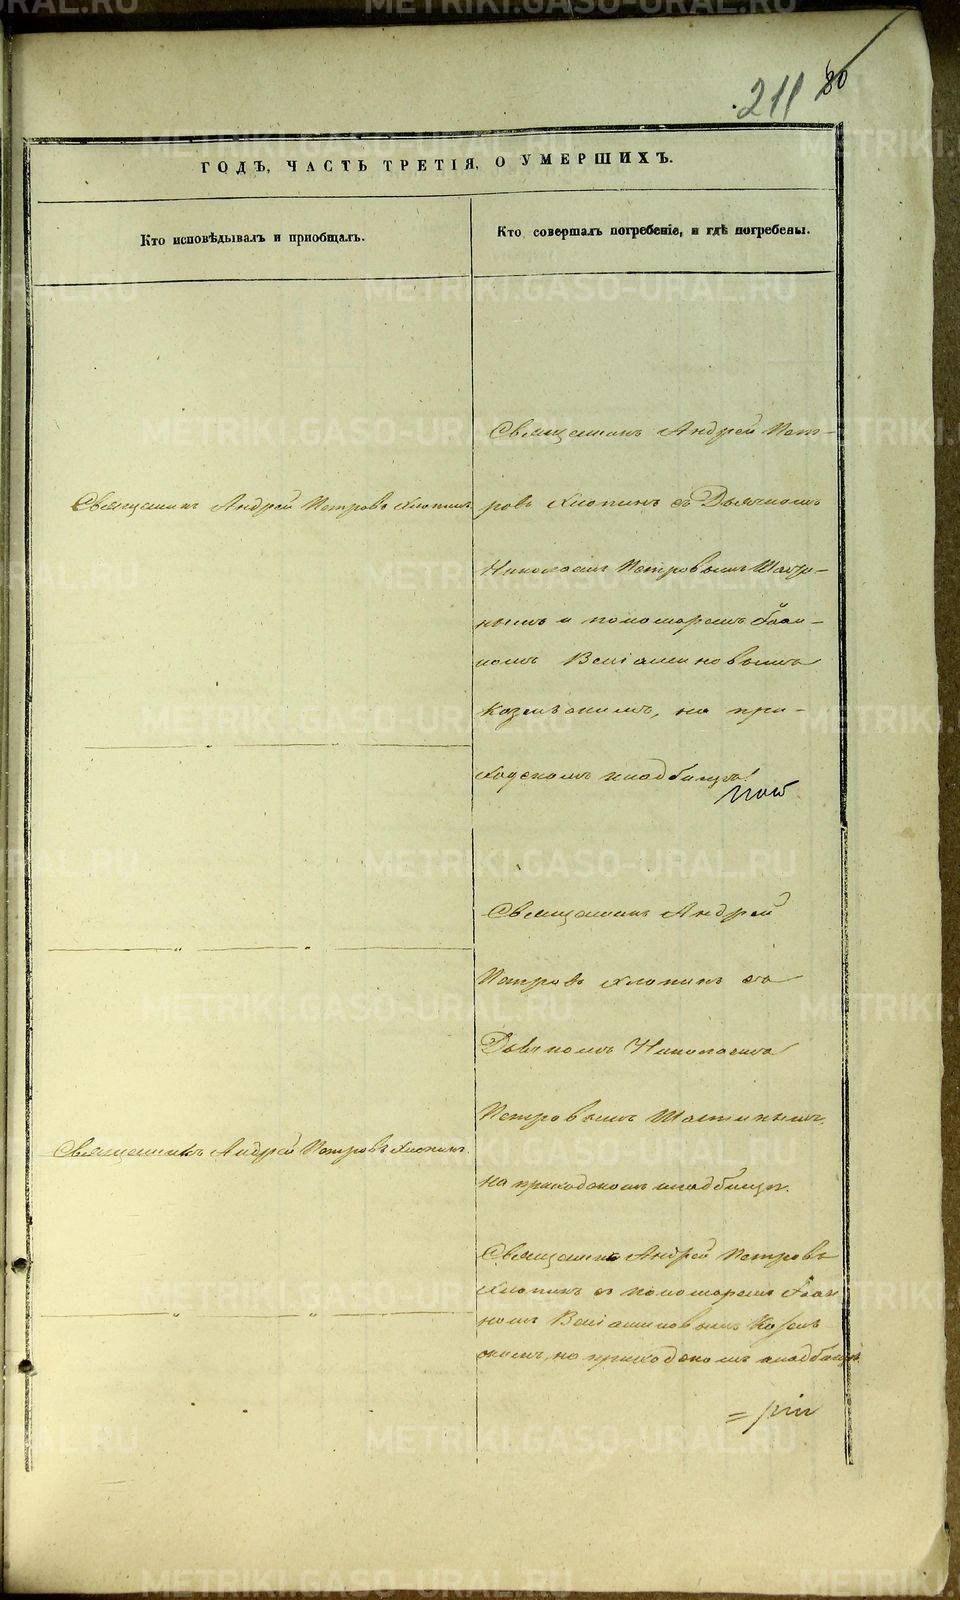 211 80
ГОДЪ, ЧАСТЬ ТРЕТІЯ, О УМЕРШИХЪ.
Кто исповѣдывалъ и пріобщалъ.
Кто совершалъ погребеніе, и гдѣ погребены.
Священникъ Андрей Петровъ Хлопинъ
Священникъ Андрей Пет-
ровъ Хлопинъ съ Дьячкомъ
Николаемъ Петровымъ
нымъ и пономаремъ Іоан-
номъ Веніаминовымъ
на при-
ходскомъ кладбищѣ.
Священникъ Андрей
Петровъ Хлопинъ съ
Дьячкомъ Николаемъ
Петровымъ
на приходскомъ кладбищѣ.
Священникъ Андрей Петровъ Хлопинъ
Священникъ Андрей Петровъ
Хлопинъ съ пономаремъ Іоан
номъ Веніаминовымъ
на приходскомъ кладбищѣ.
METRIKI.GASO-URAL.RU